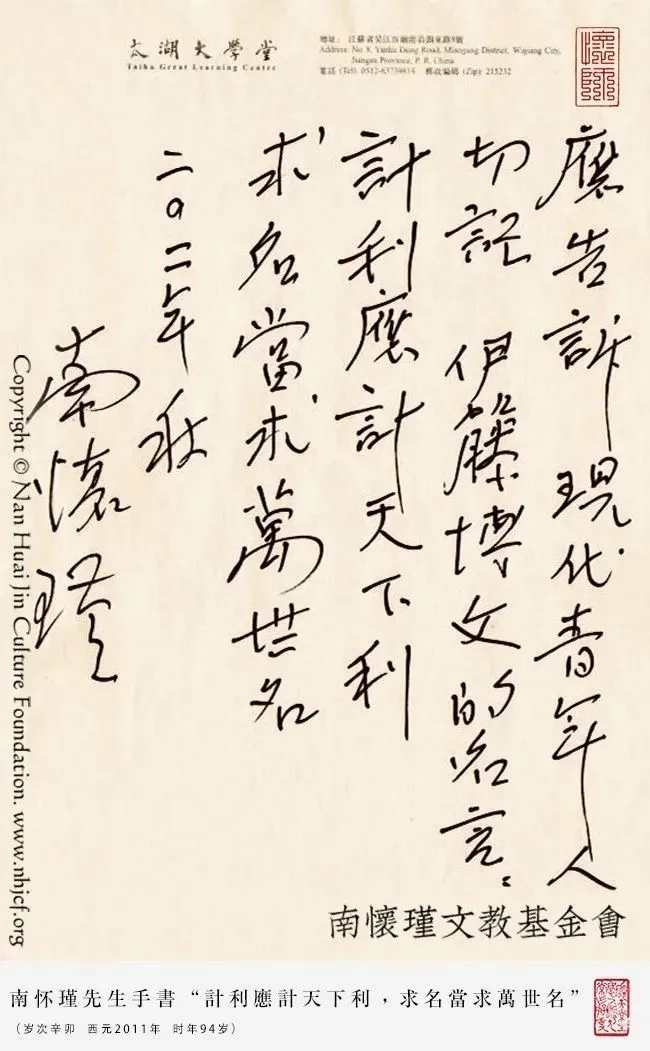 太湖大學堂
Taihu Great Learning Centre
地址: 江蘇省吳江市廟港沿湖東路8號
Address: No. 8, Yanhu Dong Road, Miaogang District, Wujiang City,
Jiangsu Province, P. R. China
電話 (Tel) 0512-63739819 郵政編碼 (Zip) 215232
懷師
應告訴現代青年人
切記 伊籐博文的名言:
計利應計天下利
求名當求萬世名
二〇一一年秋
南懷瑾
Copyright © Nan Huai Jin Culture Foundation. www.nhjcf.org
南懷瑾文教基金會
南怀瑾先生手書“計利應計天下利，求名當求萬世名”
（岁次辛卯 西元2011年 时年94岁）